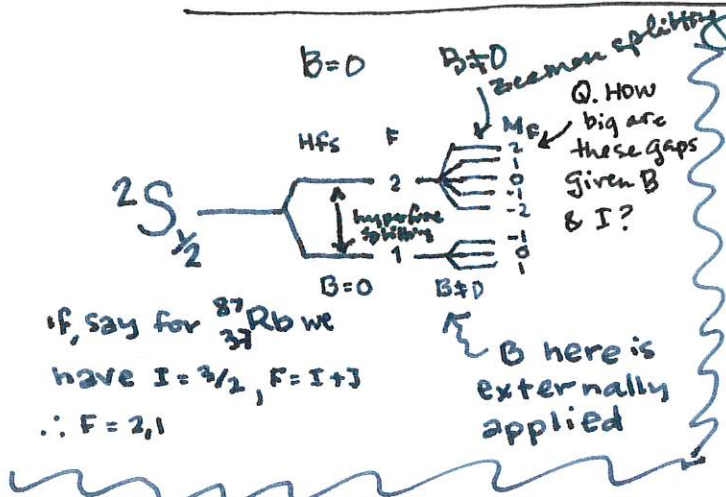 B=0 B≠0 Zeeman splitting
Hfs F M_F
Q. How
big are
these gaps
given B
& I?
2
1
2 0
-1
-2
²S₁/₂
hyperfine
splitting
-1
1 0
1
B=0 B≠0
if, say for ⁸⁷₃₇Rb we
have I = 3/2, F = I + J
∴ F = 2,1
B here is
externally
applied